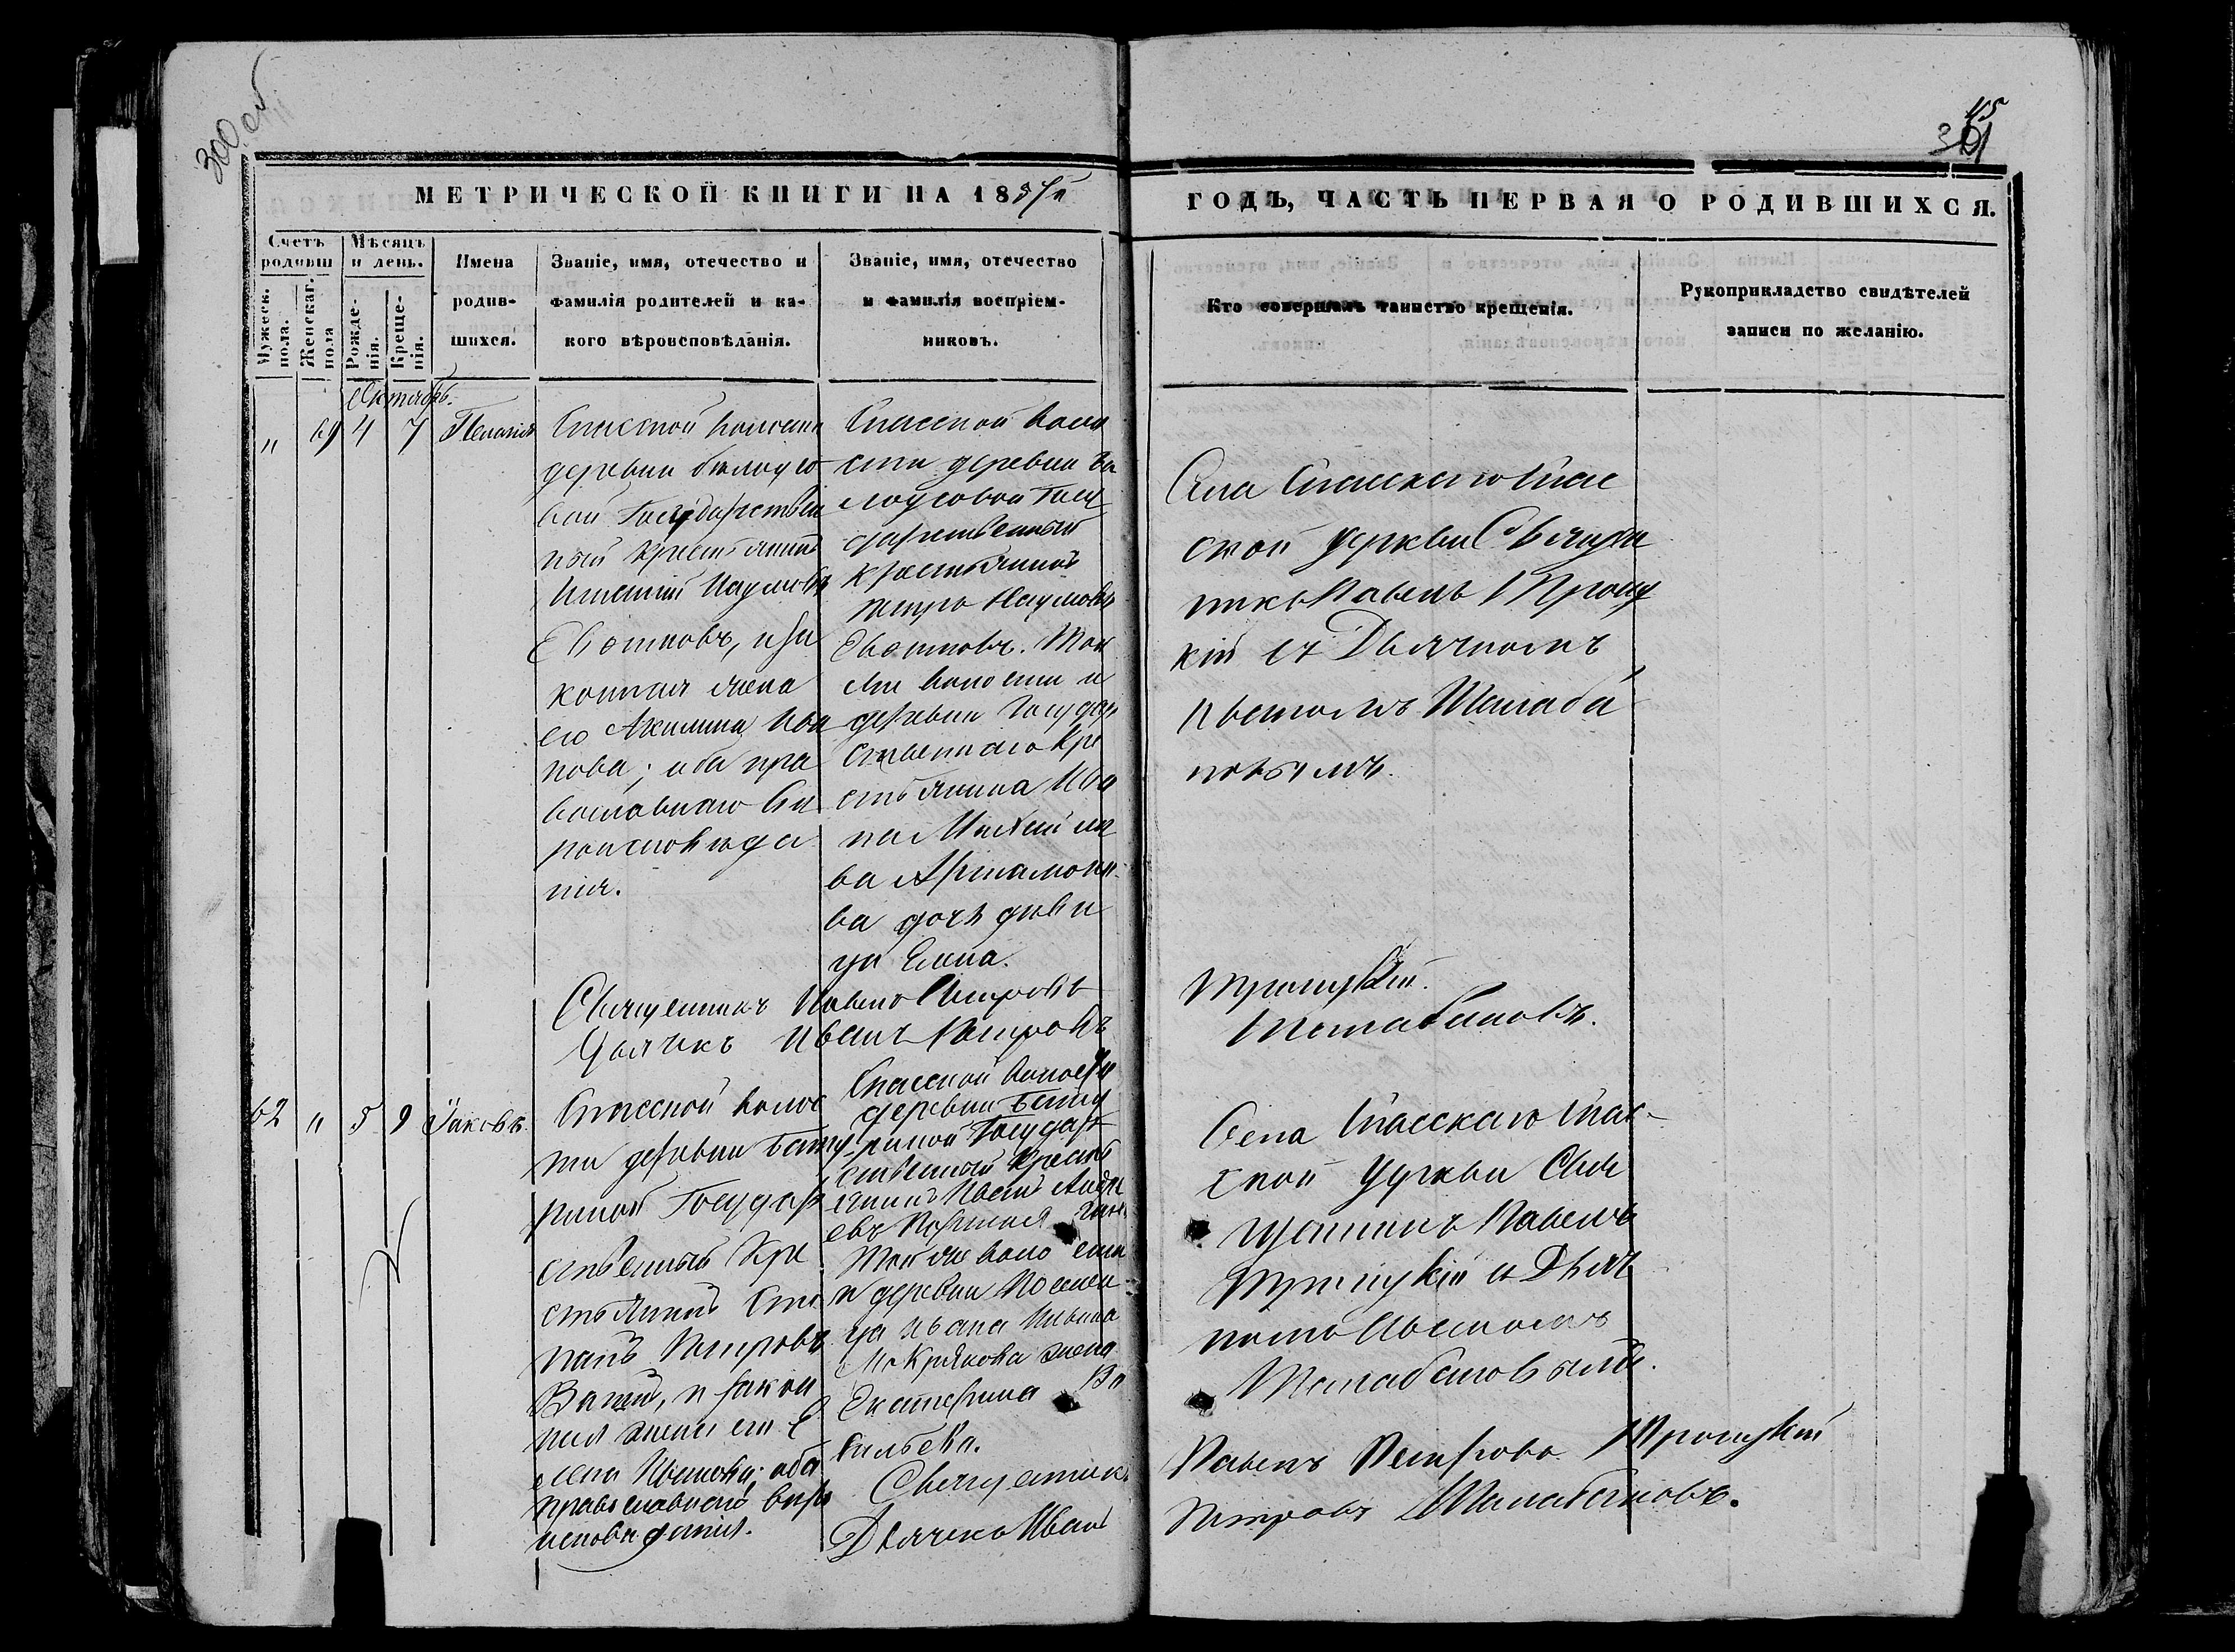 300 об
45
301
МЕТРИЧЕСКОЙ КНИГИ НА 185
ГОДЪ, ЧАСТЬ ПЕРВАЯ О РОДИВШИХСЯ.
Счетъ родивш
Мужеск. пола.
Женскаг. пола
Мѣсяцъ и день.
Рожденія.
Крещенія.
Имена
родив-
шихся.
Званіе, имя, отечество и
фамилія родителей и ка-
кого вѣроисповѣданія.
Званіе, имя, отечество
и фамилія воспріем-
никовъ.
Кто совершалъ таинство крещенія.
Рукоприкладство свидѣтелей
записи по желанію.
Октябрь.
" 4 7 Пелагія
Спасской волости
деревни Бѣлоусо
вой Государствен
ный крестьянинъ
Игнатій Наумовъ
и за
конная жена
его Акилина Ива
нова; оба пра
вославнаго вѣ
роисповѣда
нія.
Спасской воло
сти деревни Бѣ
лоусовой Госу
дарственный
крестьянинъ
Петръ Наумовъ
Той
же волости и
деревни Государ
ственнаго кре
стьянина Ива
на
ва Артамоно
ва дочь дѣви
ца Елена.
Села Спасскаго Спас
ской церкви Священ
никъ Павелъ Троиц
кій съ Дьячкомъ
Иваномъ Шала
новымъ.
Священникъ Павелъ Петровъ Троицкій.
Дьячекъ Иванъ Петровъ
62 " 5 9 Іаковъ.
Спасской волос
ти деревни Бату
риной Государ
ственный кре
стьянинъ Сте
панъ Петровъ
и закон
ная жена его Е
лена Иванова; оба
православнаго вѣро
исповѣданія.
Спасской волости
деревни Бату
риной Государ
ственный кресть
янинъ Иванъ Андре
евъ
Той же воло сти
и деревни
ца Ивана
Мокрякова жена
Екатерина Ва
сильева.
Села Спасскаго Спас-
ской церкви Свя
щенникъ Павелъ
Троицкій и Дьяч
комъ Иваномъ
Священникъ Павелъ Петровъ Троицкій
Дьячекъ Иванъ Петровъ